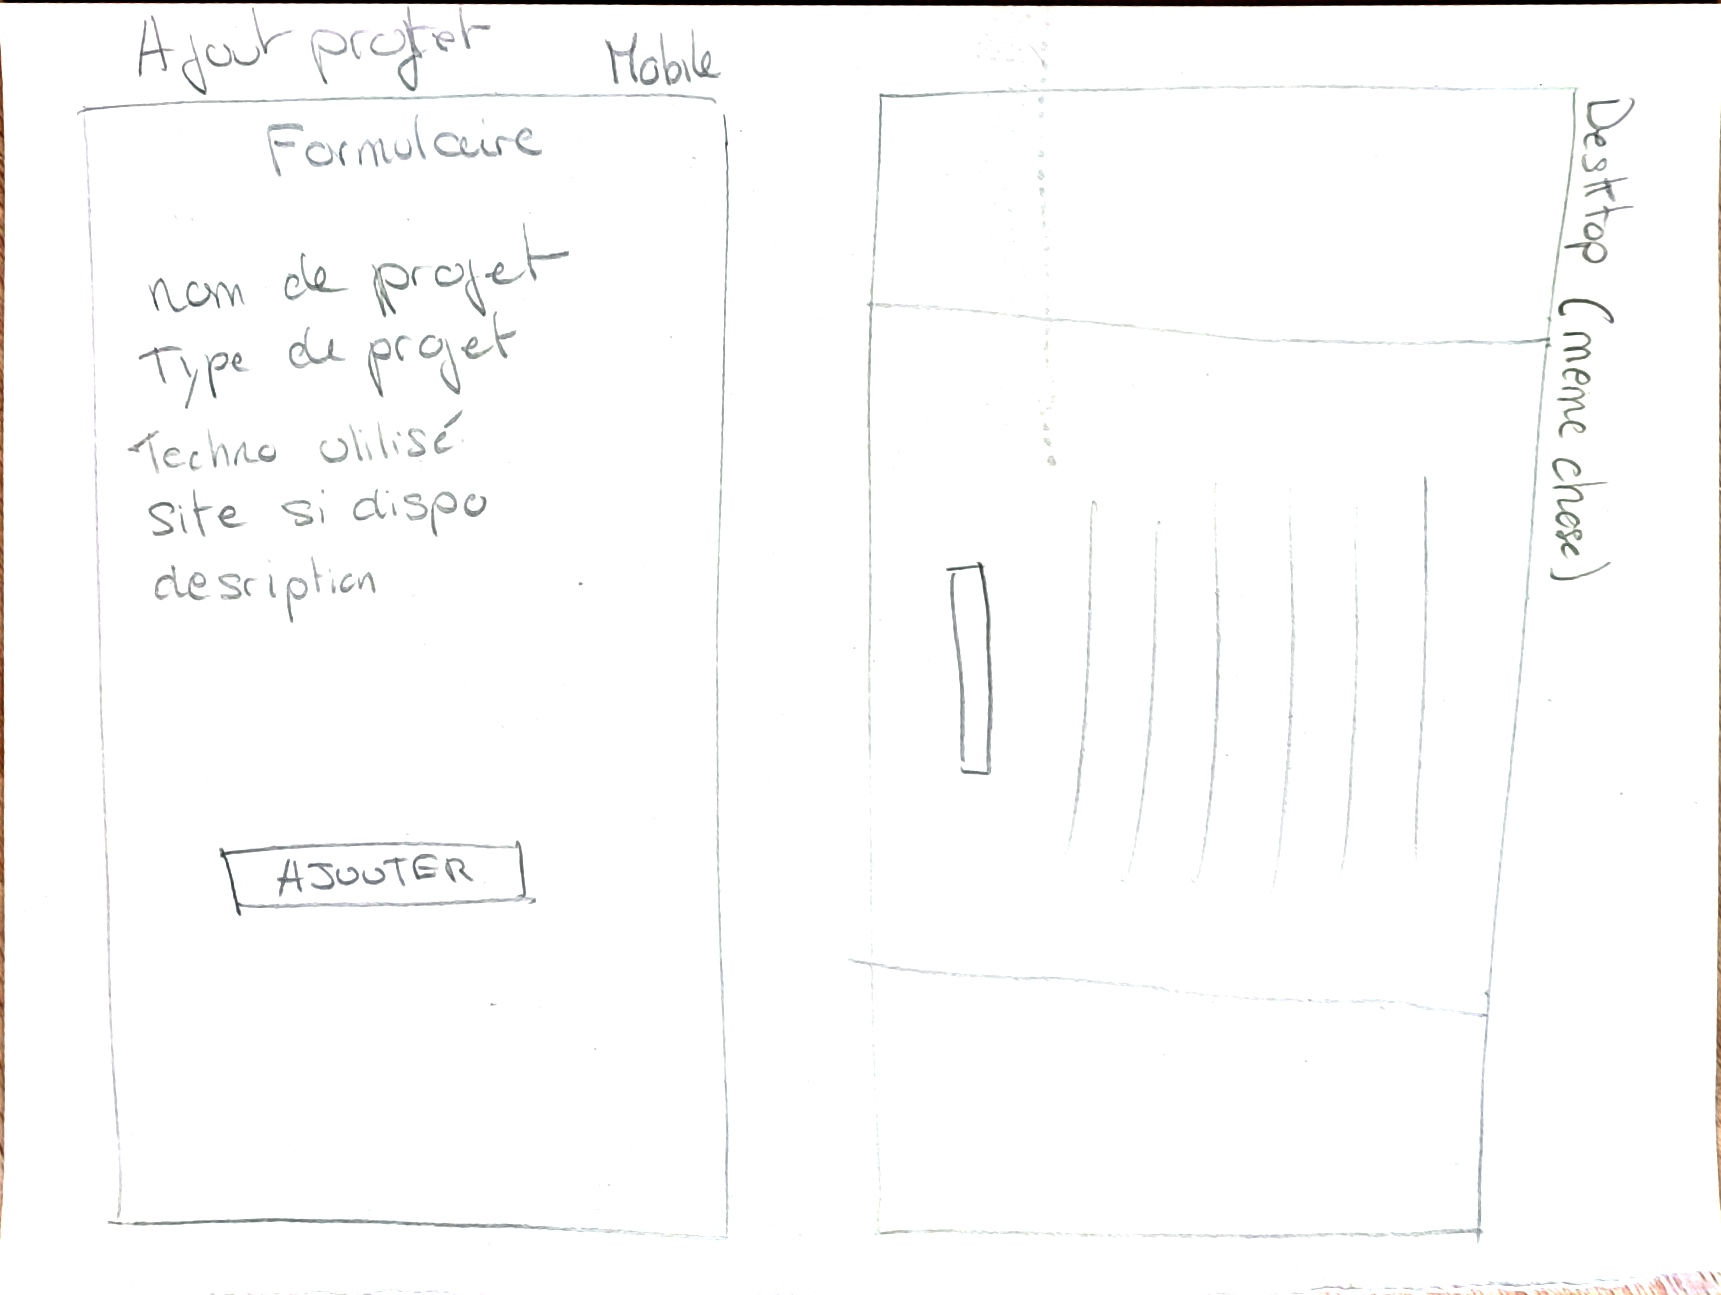 Ajout projet
Mobile
Formulaire
nom de projet
Type de projet
Techno utilisé
site si dispo
desription
AJOUTER
Desktop (meme chose)